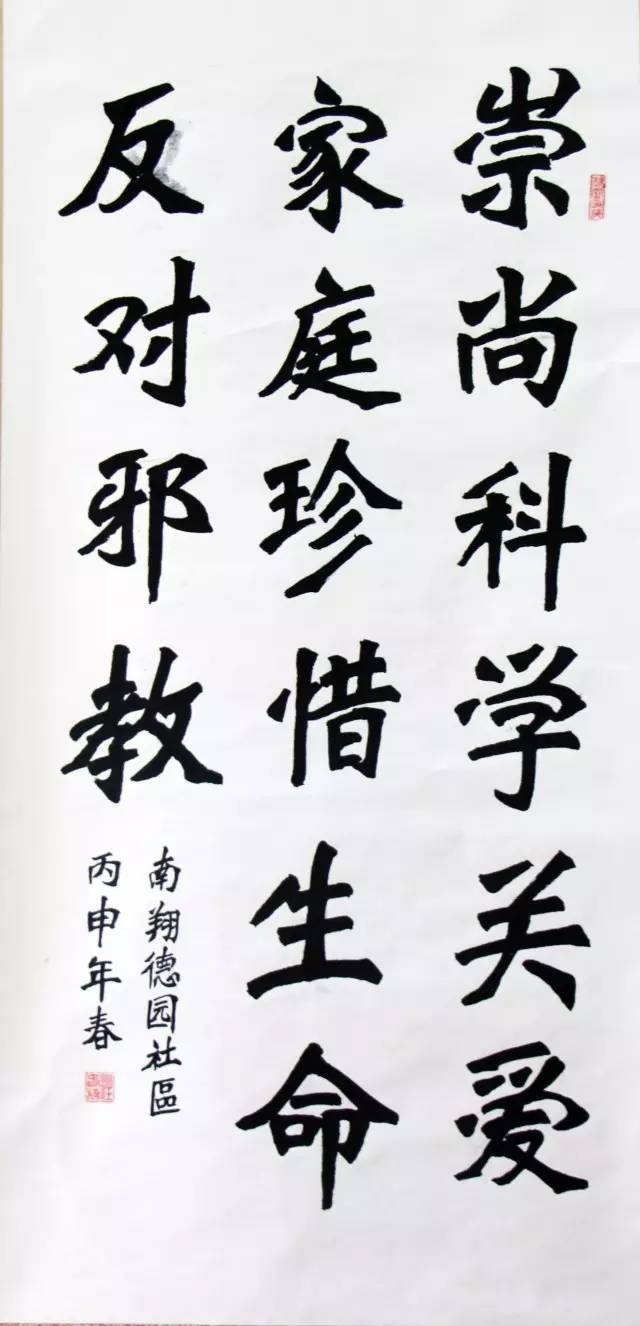 崇尚科学关爱
家庭珍惜生命
反对邪教
南翔德园社區
丙申年春